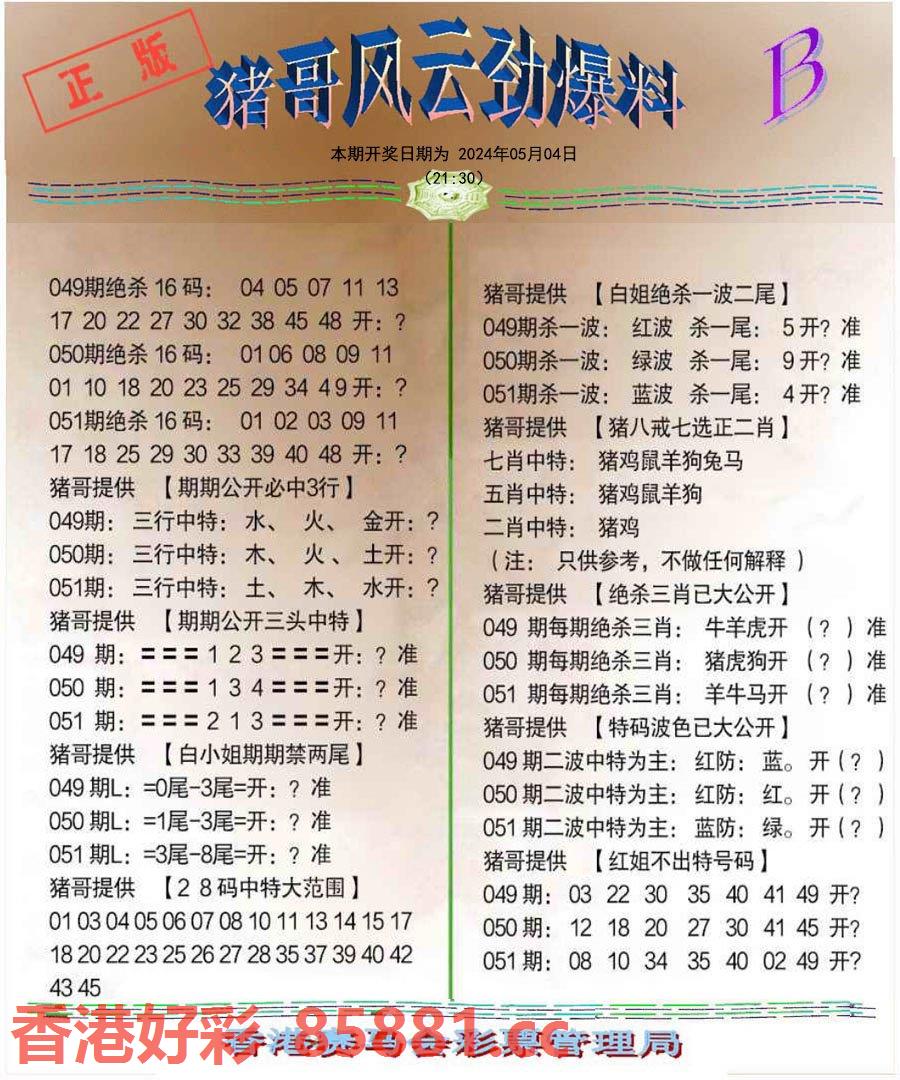 正版
猪哥风云劲爆料
B
本期开奖日期为 2024年05月04日
(21:30)
049期绝杀 16 码： 04 05 07 11 13
17 20 22 27 30 32 38 45 48 开：？
050期绝杀 16 码： 01 06 08 09 11
01 10 18 20 23 25 29 34 4 9 开：？
051期绝杀 16 码： 01 02 03 09 11
17 18 25 29 30 33 39 40 48 开：？
猪哥提供 【期期公开必中3行】
049期： 三行中特： 水、 火、 金开：？
050期： 三行中特： 木、 火 、 土开：？
051期： 三行中特： 土、 木、 水开：？
猪哥提供 【期期公开三头中特】
049 期：=== 1 2 3 ===开：？准
050 期：=== 1 3 4 ===开：？准
051 期：=== 2 1 3 ===开：？准
猪哥提供 【白小姐期期禁两尾】
049 期L：=0尾-3尾=开：？准
050 期L：=1尾-3尾=开：？准
051 期L：=3尾-8尾=开：？准
猪哥提供 【2 8 码中特大范围】
01 03 04 05 06 07 08 10 11 13 14 15 17
18 20 22 23 25 26 27 28 35 37 39 40 42
43 45
猪哥提供 【白姐绝杀一波二尾】
049期杀一波： 红波 杀一尾： 5 开？准
050期杀一波： 绿波 杀一尾： 9 开？准
051期杀一波： 蓝波 杀一尾： 4 开？准
猪哥提供 【猪八戒七选正二肖】
七肖中特： 猪鸡鼠羊狗兔马
五肖中特： 猪鸡鼠羊狗
二肖中特： 猪鸡
（注： 只供参考，不做任何解释 ）
猪哥提供 【绝杀三肖已大公开】
049 期每期绝杀三肖： 牛羊虎开 （？ ）准
050 期每期绝杀三肖： 猪虎狗开 （？ ）准
051 期每期绝杀三肖： 羊牛马开 （？ ）准
猪哥提供 【特码波色已大公开】
049 期二波中特为主： 红防： 蓝。 开（？ ）
050 期二波中特为主： 红防： 红。 开（？ ）
051 期二波中特为主： 蓝防： 绿。 开（？ ）
猪哥提供 【红姐不出特号码】
049 期： 03 22 30 35 40 41 49 开?
050 期： 12 18 20 27 30 41 45 开?
051 期： 08 10 34 35 40 02 49 开?
香港好彩 85881.cc
香港赛马会彩票管理局